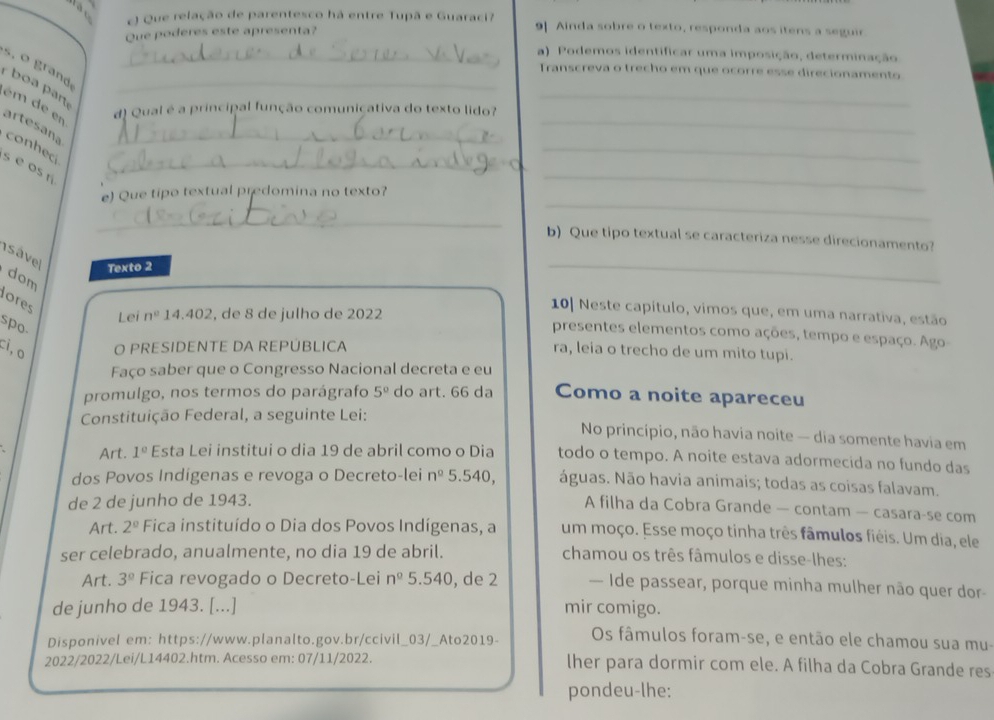 s, o grande
r boa parte
lém de en
artesana
conheci
is e os ri
nsável
dom
dores
spo-
ci, o
c) Que relação de parentesco há entre Tupã e Guaraci?
Que poderes este apresenta?
de Seres Vivos
d) Qual é a principal função comunicativa do texto lido?
e) Que tipo textual predomina no texto?
Texto 2
Lei nº 14.402, de 8 de julho de 2022
O PRESIDENTE DA REPÚBLICA
Faço saber que o Congresso Nacional decreta e eu
promulgo, nos termos do parágrafo 5º do art. 66 da
Constituição Federal, a seguinte Lei:
Art. 1º Esta Lei institui o dia 19 de abril como o Dia
dos Povos Indígenas e revoga o Decreto-lei nº 5.540,
de 2 de junho de 1943.
Art. 2º Fica instituído o Dia dos Povos Indígenas, a
ser celebrado, anualmente, no dia 19 de abril.
Art. 3º Fica revogado o Decreto-Lei nº 5.540, de 2
de junho de 1943. [...]
Disponível em: https://www.planalto.gov.br/ccivil_03/_Ato2019-
2022/2022/Lei/L14402.htm. Acesso em: 07/11/2022.
9| Ainda sobre o texto, responda aos itens a seguir.
a) Podemos identificar uma imposição, determinação
Transcreva o trecho em que ocorre esse direcionamento
b) Que tipo textual se caracteriza nesse direcionamento?
10| Neste capítulo, vimos que, em uma narrativa, estão
presentes elementos como ações, tempo e espaço. Ago-
ra, leia o trecho de um mito tupi.
Como a noite apareceu
No princípio, não havia noite — dia somente havia em
todo o tempo. A noite estava adormecida no fundo das
águas. Não havia animais; todas as coisas falavam.
A filha da Cobra Grande — contam — casara-se com
um moço. Esse moço tinha três fâmulos fiéis. Um dia, ele
chamou os três fâmulos e disse-lhes:
— Ide passear, porque minha mulher não quer dor-
mir comigo.
Os fâmulos foram-se, e então ele chamou sua mu-
lher para dormir com ele. A filha da Cobra Grande res-
pondeu-lhe: